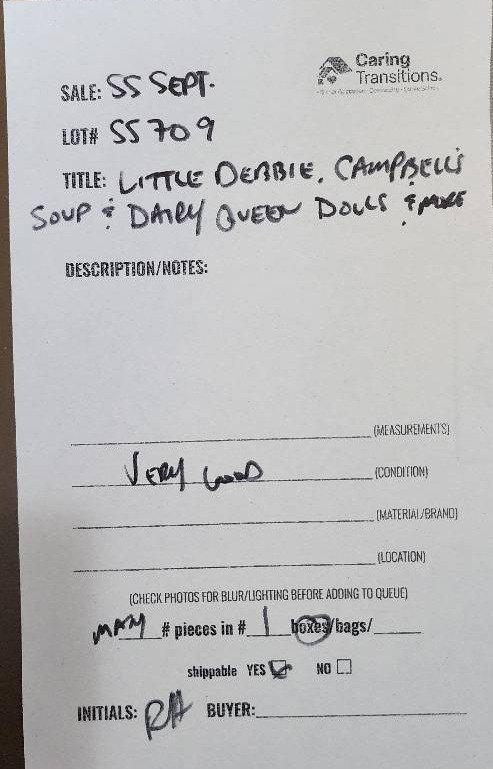 Caring
Transitions®
SALE: SS SEPT.
LOT# SS 709
TITLE: LITTLE DEBBIE, CAMPBELL'S
SOUP & DAIRY QUEEN DOLLS & MORE
DESCRIPTION/NOTES:
(MEASUREMENTS)
VERY GOOD (CONDITION)
(MATERIAL/BRAND)
(LOCATION)
(CHECK PHOTOS FOR BLUR/LIGHTING BEFORE ADDING TO QUEUE)
MANY # pieces in # 1 boxes/bags/
shippable YES NO
INITIALS: RH BUYER: